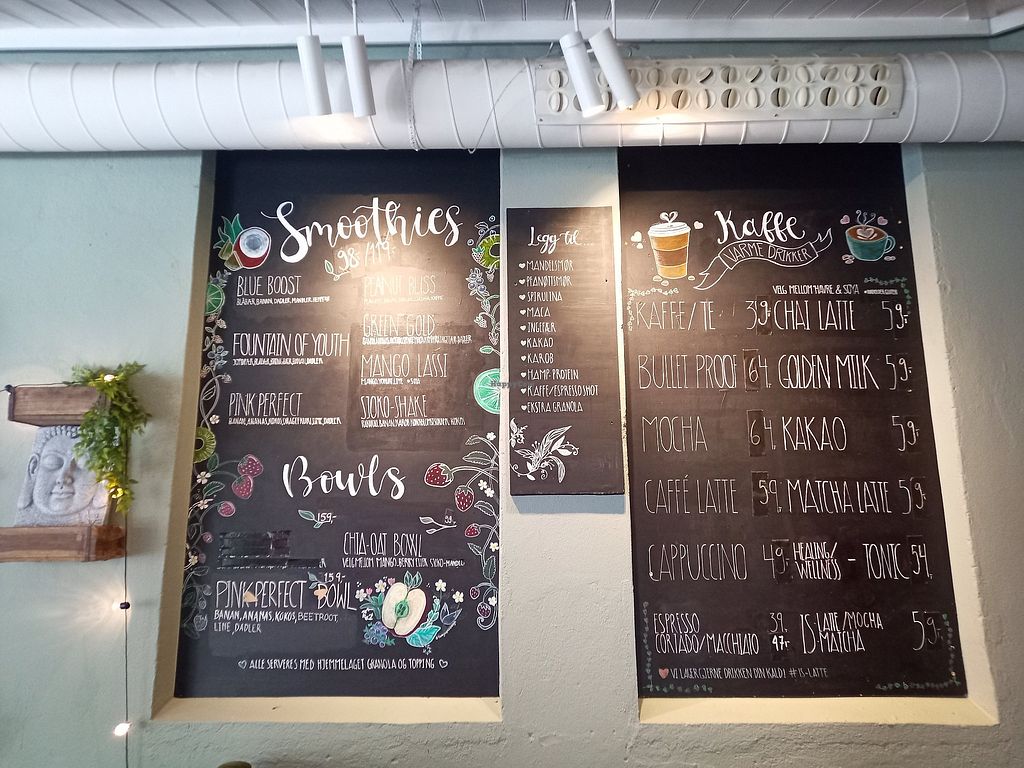 Smoothies
98,-/114,-
BLUE BOOST
BLÅBÆR, BANAN, DADLER, MANDLER, HEMPFRØ
FOUNTAIN OF YOUTH
PINK PERFECT
BANAN, ANANAS, KOKOS, DRAGEFRUKT, LIME, DADLER
PEANUT BLISS
GREEN GOLD
MANGO LASSI
SJOKO-SHAKE
Bowls
159,-
CHIA-OAT BOWL
VELG MELLOM MANGO, BERRY ELLER SJOKO-MANDEL
159,-
PINK PERFECT BOWL
BANAN, ANANAS, KOKOS, BEETROOT,
LIME, DADLER
ALLE SERVERES MED HJEMMELAGET GRANOLA OG TOPPING
Legg til...
MANDELSMØR
PEANØTTSMØR
SPIRULINA
MACA
INGEFÆR
KAKAO
KAROB
HAMP-PROTEIN
KAFFE/ESPRESSOSHOT
EKSTRA GRANOLA
Kaffe
VARME DRIKKER
VELG MELLOM HAVRE & SOYA
KAFFE/TE 39,- CHAI LATTE 59,-
BULLET PROOF 64,- GOLDEN MILK 59,-
MOCHA 64,- KAKAO 59,-
CAFFÉ LATTE 59,- MATCHA LATTE 59,-
CAPPUCCINO 49,- HEALING/WELLNESS – TONIC 54,-
ESPRESSO 39,- IS-LATE/MOCHA 59,-
CORTADO/MACCHIATO 47,- MATCHA
VI LAGER GJERNE DRIKKEN DIN KALD! #IS-LATTE